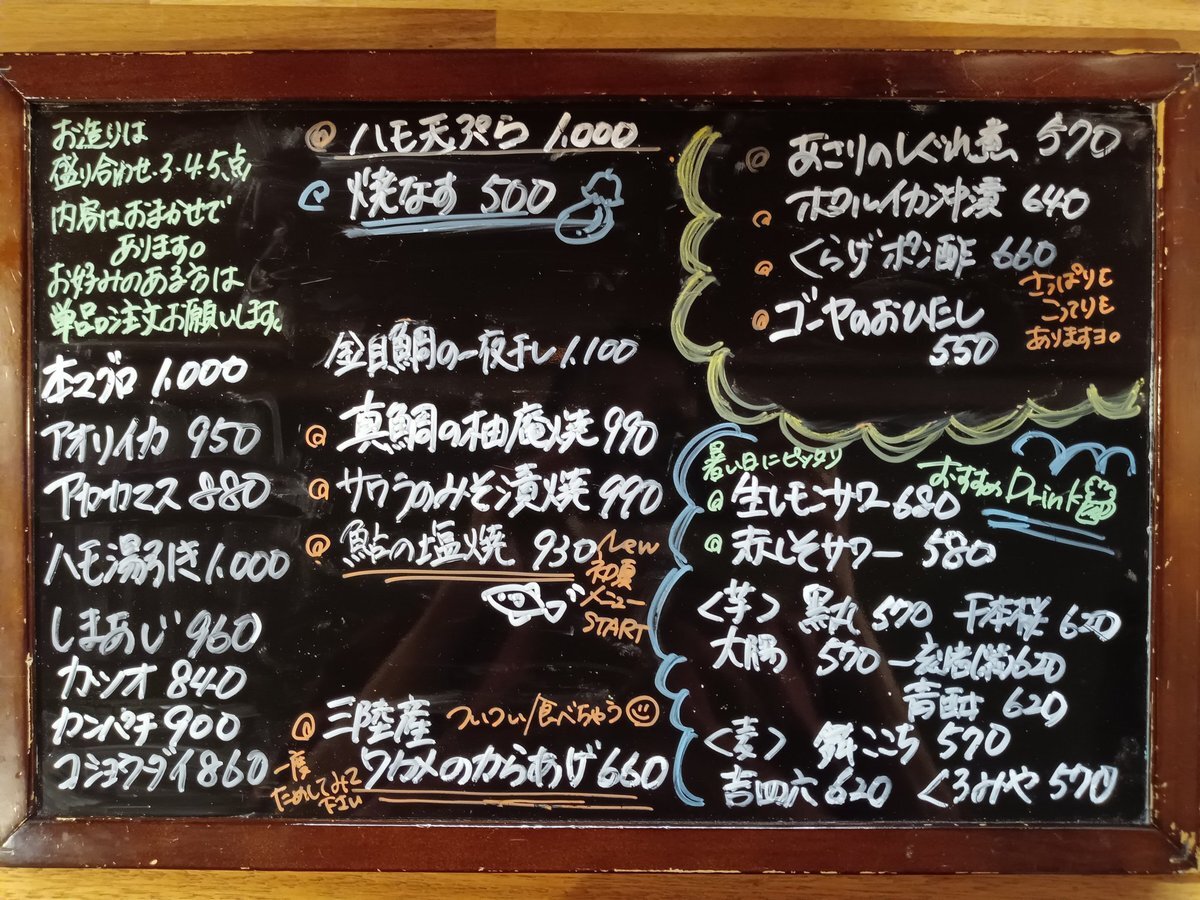 お造りは
盛り合わせ・3・4・5点
内容はおまかせで
あります。
お好みのある方は
単品の注文お願いします。
本マグロ 1,000
アオリイカ 950
アカカマス 880
ハモ湯引き 1,000
しまあじ 960
カツオ 840
カンパチ 900
コショウダイ 860
ハモ天ぷら 1,000
焼なす 500
金目鯛の一夜干し 1,100
真鯛の柚庵焼 990
サワラのみそ漬焼 990
鮎の塩焼 930
New
初夏
メニュー
START
三陸産
ついつい食べちゃう
ワカメのからあげ 660
一度
ためしてみて
下さい
あさりのしぐれ煮 570
ホタルイカ沖漬 640
くらげポン酢 660
ゴーヤのおひたし
550
さっぱりも
こってりも
ありますヨ。
暑い日にピッタリ
おすすめ Drink
生レモンサワー 680
赤しそサワー 580
〈芋〉 黒丸 570 千本桜 620
大陽 570 一刻者 620
620
〈麦〉 舞ここち 570
吉四六 620 くろみや 570